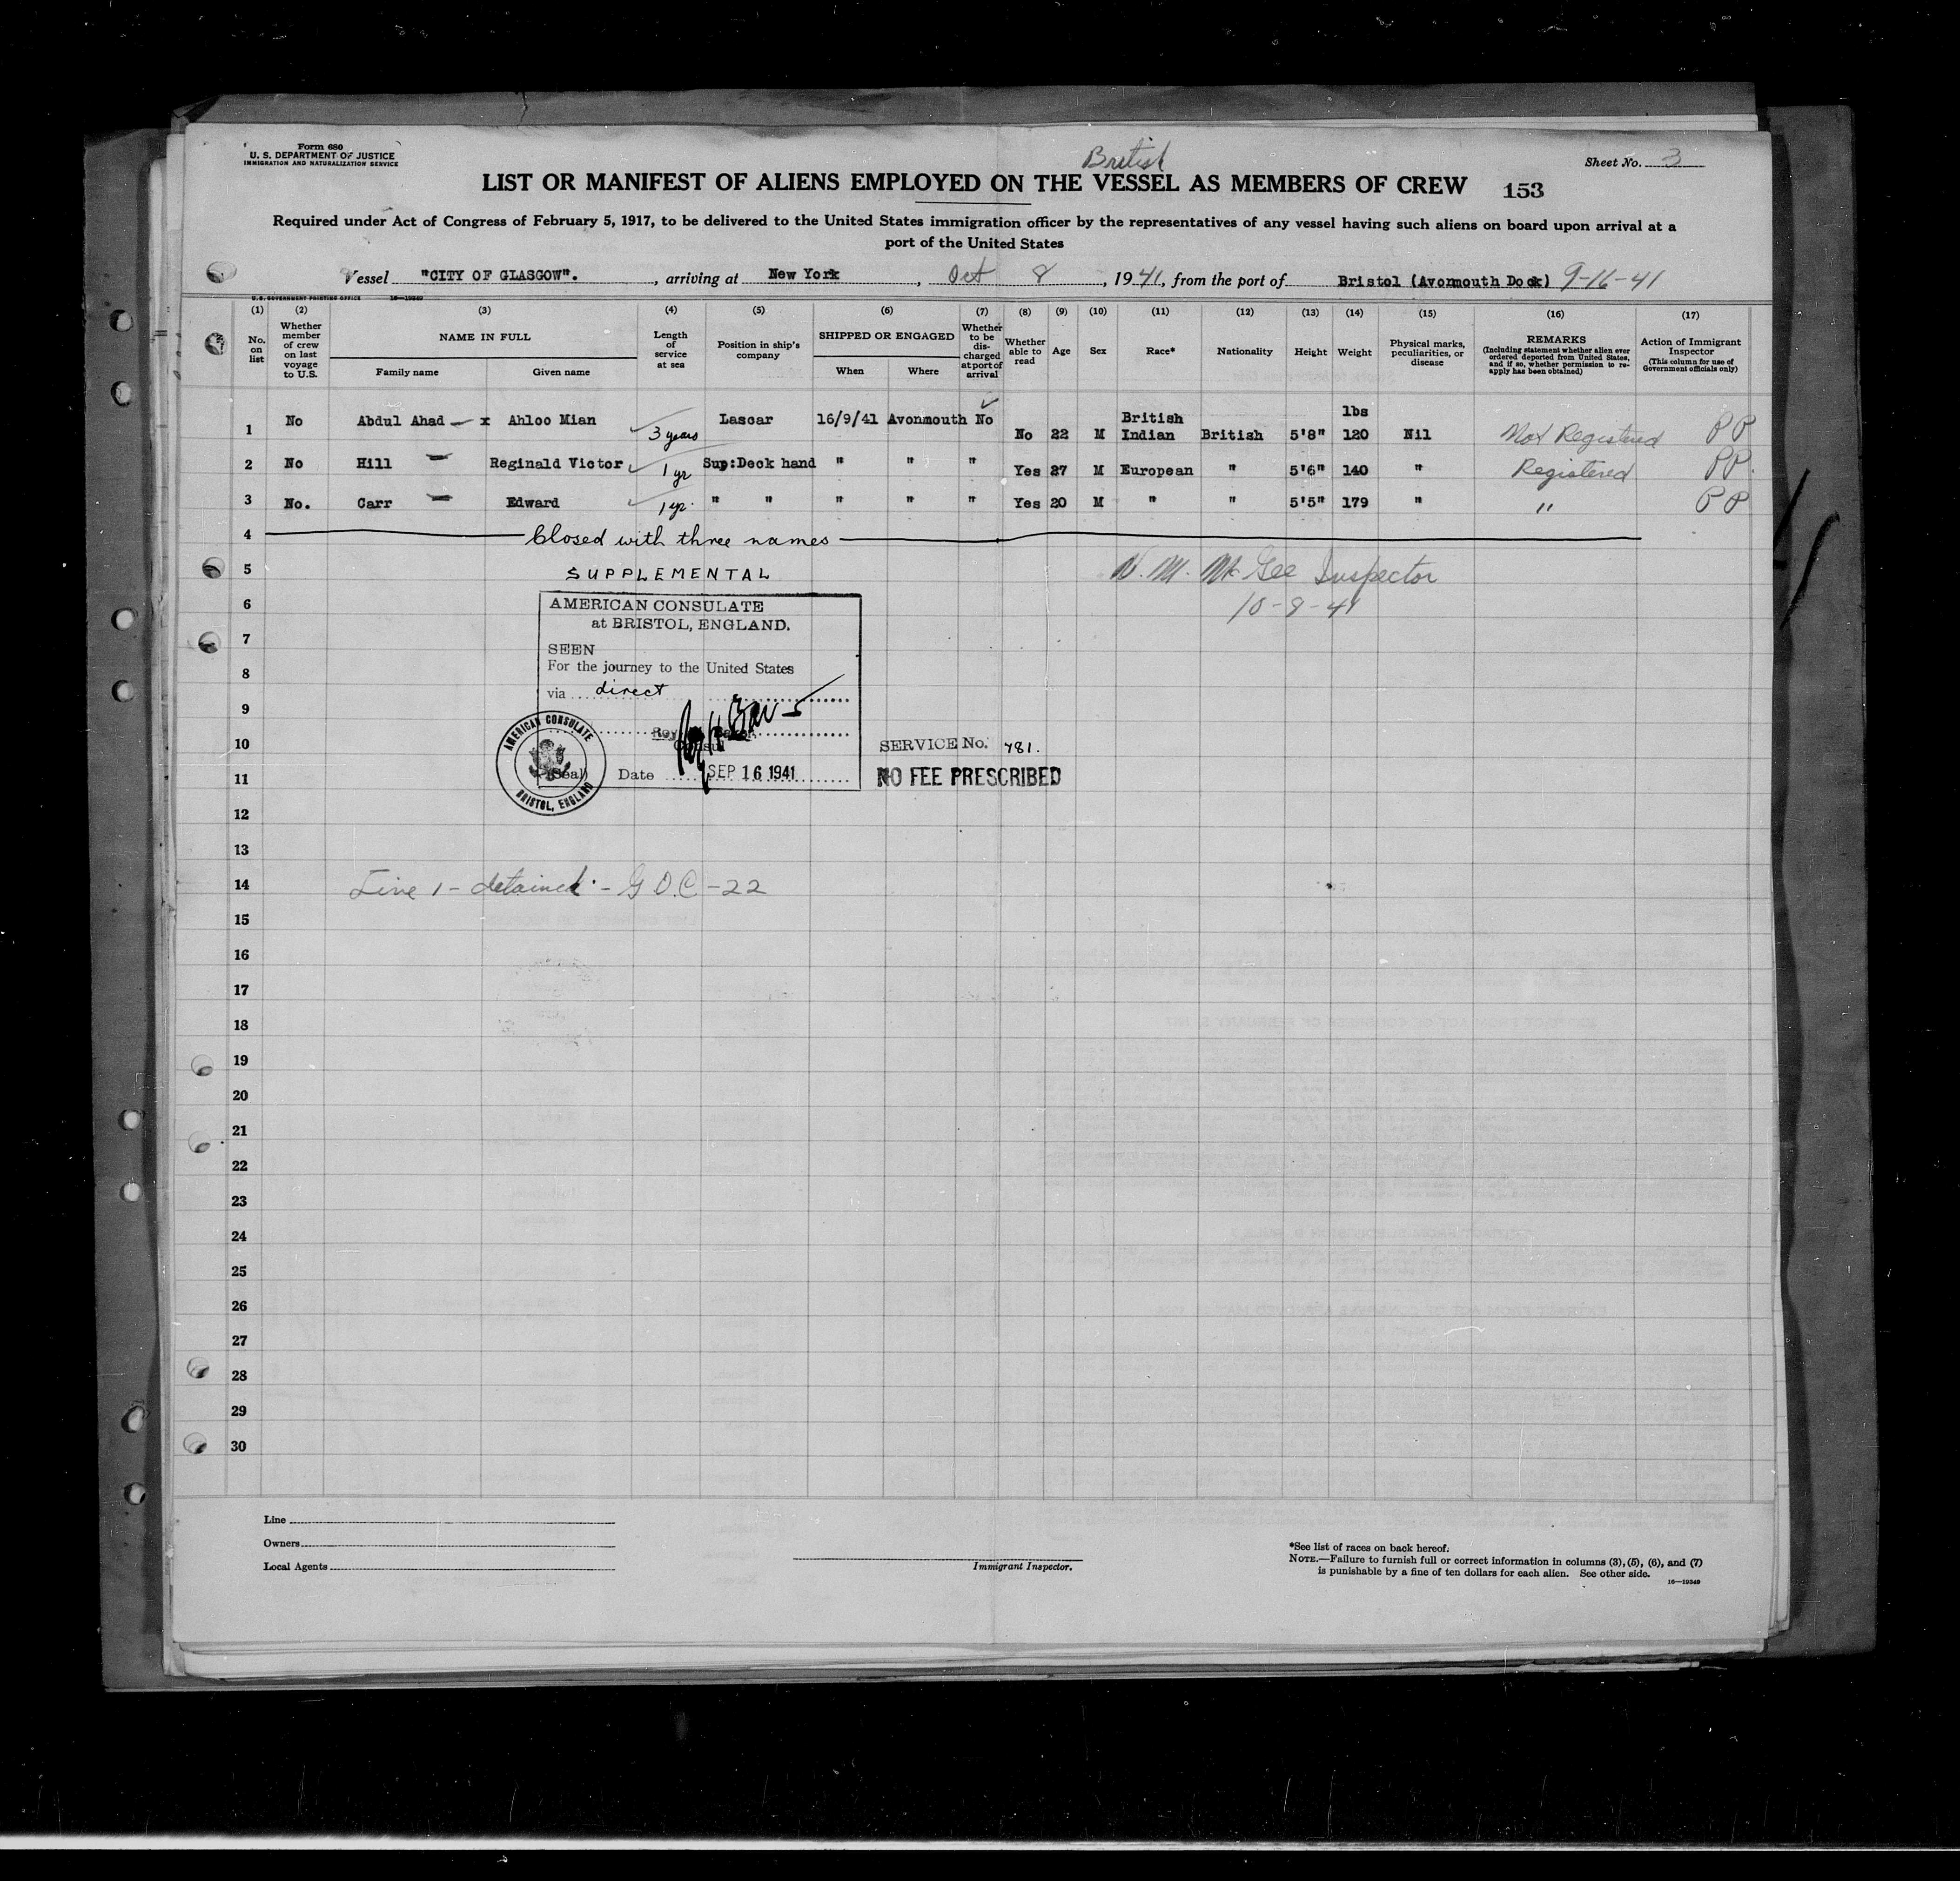 Form 680
U. S. DEPARTMENT OF JUSTICE
IMMIGRATION AND NATURALIZATION SERVICE
British
Sheet No. 3
LIST OR MANIFEST OF ALIENS EMPLOYED ON THE VESSEL AS MEMBERS OF CREW 153
Required under Act of Congress of February 5, 1917, to be delivered to the United States immigration officer by the representatives of any vessel having such aliens on board upon arrival at a
port of the United States
Vessel "CITY OF GLASGOW". , arriving at New York , Oct 8 , 1941, from the port of Bristol (Avonmouth Dock) 9-16-41
U.S. GOVERNMENT PRINTING OFFICE 16—19349
(1) No. on list
(2) Whether member of crew on last voyage to U.S.
(3) NAME IN FULL Family name Given name
(4) Length of service at sea
(5) Position in ship's company
(6) SHIPPED OR ENGAGED When Where
(7) Whether to be discharged at port of arrival
(8) Whether able to read
(9) Age
(10) Sex
(11) Race*
(12) Nationality
(13) Height
(14) Weight
(15) Physical marks, peculiarities, or disease
(16) REMARKS (Including statement whether alien ever ordered deported from United States, and if so, whether permission to reapply has been obtained)
(17) Action of Immigrant Inspector (This column for use of Government officials only)
1 No Abdul Ahad x Ahloo Mian 3 years Lascar 16/9/41 Avonmouth No No 22 M British Indian British 5'8" lbs 120 Nil Not Registered PP
2 No Hill Reginald Victor 1 yr Sup:Deck hand " " " Yes 27 M European " 5'6" 140 " Registered PP.
3 No. Carr Edward 1 yr. " " " " " Yes 20 M " " 5'5" 179 " " PP
4 Closed with three names
5 SUPPLEMENTAL Mc Gee Inspector
6 AMERICAN CONSULATE
at BRISTOL, ENGLAND.
7
SEEN
8 For the journey to the United States
via direct
9
10 Consul SERVICE No. 781.
11 (Seal) Date SEP 16 1941 NO FEE PRESCRIBED
AMERICAN CONSULATE BRISTOL, ENGLAND
12
13
14 Line 1 - detained - -22
15
16
17
18
19
20
21
22
23
24
25
26
27
28
29
30
Line
Owners
Local Agents
Immigrant Inspector.
*See list of races on back hereof.
NOTE.—Failure to furnish full or correct information in columns (3), (5), (6), and (7)
is punishable by a fine of ten dollars for each alien. See other side.
16—19349